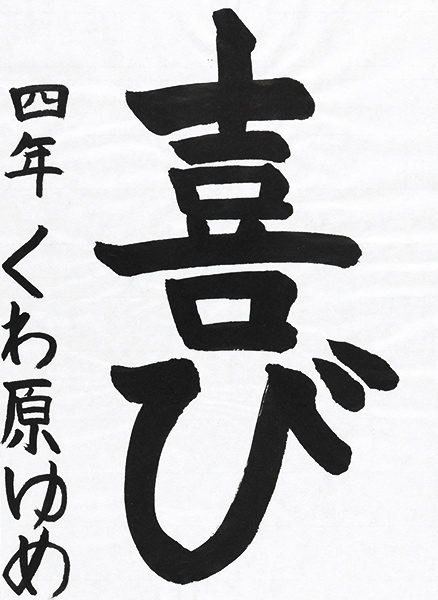 喜び
四年 くわ原ゆめ